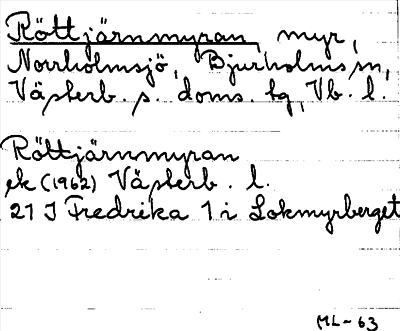 Röttjärnmyran, myr,
Norrholmsjö, Bjurholms sn,
Västerb. s. doms. lg, Vb. l.
Röttjärnmyran
ek (1962) Västerb. l.
21 J Fredrika 1 i Lokmyrberget
ML-63